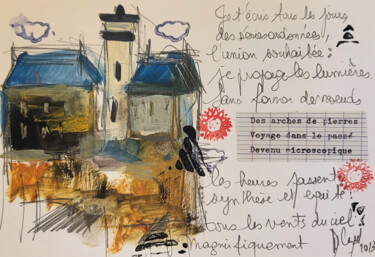 Je t'écris tous les jours
des sous ordonnées,
l'union souhaitée :
je propage les lumières
sans former de nœuds
Des arches de pierres
Voyage dans le passé
Devenu microscopique
les heures passent
synthèse et
tous les vents du ciel
magnifiquement